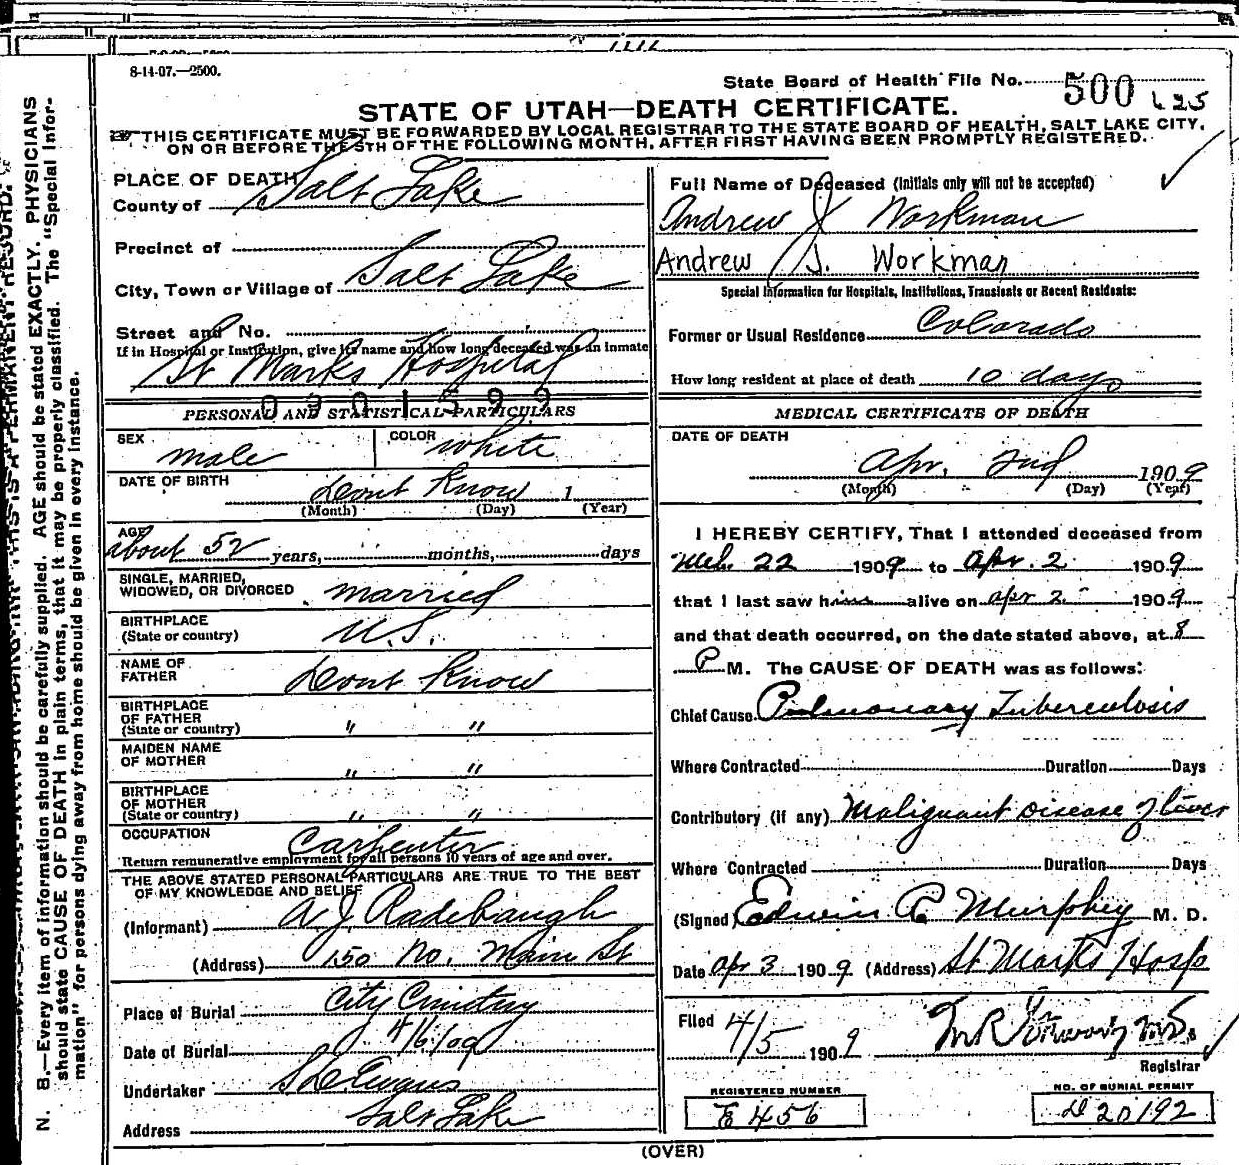 8-14-07.—2500.
State Board of Health File No. 500 625
STATE OF UTAH—DEATH CERTIFICATE.
THIS CERTIFICATE MUST BE FORWARDED BY LOCAL REGISTRAR TO THE STATE BOARD OF HEALTH, SALT LAKE CITY,
ON OR BEFORE THE 5TH OF THE FOLLOWING MONTH, AFTER FIRST HAVING BEEN PROMPTLY REGISTERED.
N. B.—Every item of information should be carefully supplied. AGE should be stated EXACTLY. PHYSICIANS
should state CAUSE OF DEATH in plain terms, that it may be properly classified. The "Special Infor-
mation" for persons dying away from home should be given in every instance.
PLACE OF DEATH
County of Salt Lake
Precinct of
City, Town or Village of Salt Lake
Street and No.
If in Hospital or Institution, give its name and how long deceased was an inmate
St Marks Hospital
0301599
PERSONAL AND STATISTICAL PARTICULARS
SEX male COLOR white
DATE OF BIRTH Dont Know 1
(Month) (Day) (Year)
AGE about 52 years, months, days
SINGLE, MARRIED,
WIDOWED, OR DIVORCED married
BIRTHPLACE
(State or country) U.S.
NAME OF
FATHER Dont Know
BIRTHPLACE
OF FATHER
(State or country) " "
MAIDEN NAME
OF MOTHER " "
BIRTHPLACE
OF MOTHER
(State or country) " "
OCCUPATION Carpenter
Return remunerative employment for all persons 10 years of age and over.
THE ABOVE STATED PERSONAL PARTICULARS ARE TRUE TO THE BEST
OF MY KNOWLEDGE AND BELIEF
(Informant) A. J. Radebaugh
(Address) 150 No. Main St
Place of Burial City Cemetery
Date of Burial 4/6/09
Undertaker S D Evans
Address Salt Lake
Full Name of Deceased (Initials only will not be accepted)
Andrew J Workman
Andrew J. Workman
Special Information for Hospitals, Institutions, Transients or Recent Residents:
Former or Usual Residence Colorado
How long resident at place of death 10 days
MEDICAL CERTIFICATE OF DEATH
DATE OF DEATH
Apr. 2nd 1909
(Month) (Day) (Year)
I HEREBY CERTIFY, That I attended deceased from
Mch. 22 1909 to Apr. 2 1909
that I last saw him alive on apr 2 1909
and that death occurred, on the date stated above, at 8
P M. The CAUSE OF DEATH was as follows:
Chief Cause Pulmonary Tuberculosis
Where Contracted Duration Days
Contributory (if any) Malignant disease of liver
Where Contracted Duration Days
(Signed) Edwin P Murphey M. D.
Date apr 3 1909 (Address) St Marks Hosp
Filed 4/5 1909
Registrar
REGISTERED NUMBER
E 456
NO. OF BURIAL PERMIT
D 20192
(OVER)